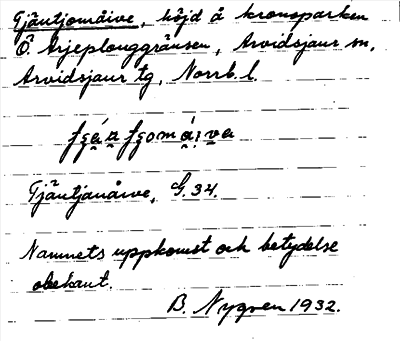 Gjäutjomåive, höjd å kronoparken
Ö. Arjeplouggränsen, Arvidsjaur sn,
Arvidsjaur tg, Norrb. l.
Gjäutjanåive, G. 34.
Namnets uppkomst och betydelse
obekant.
B. Nygren 1932.